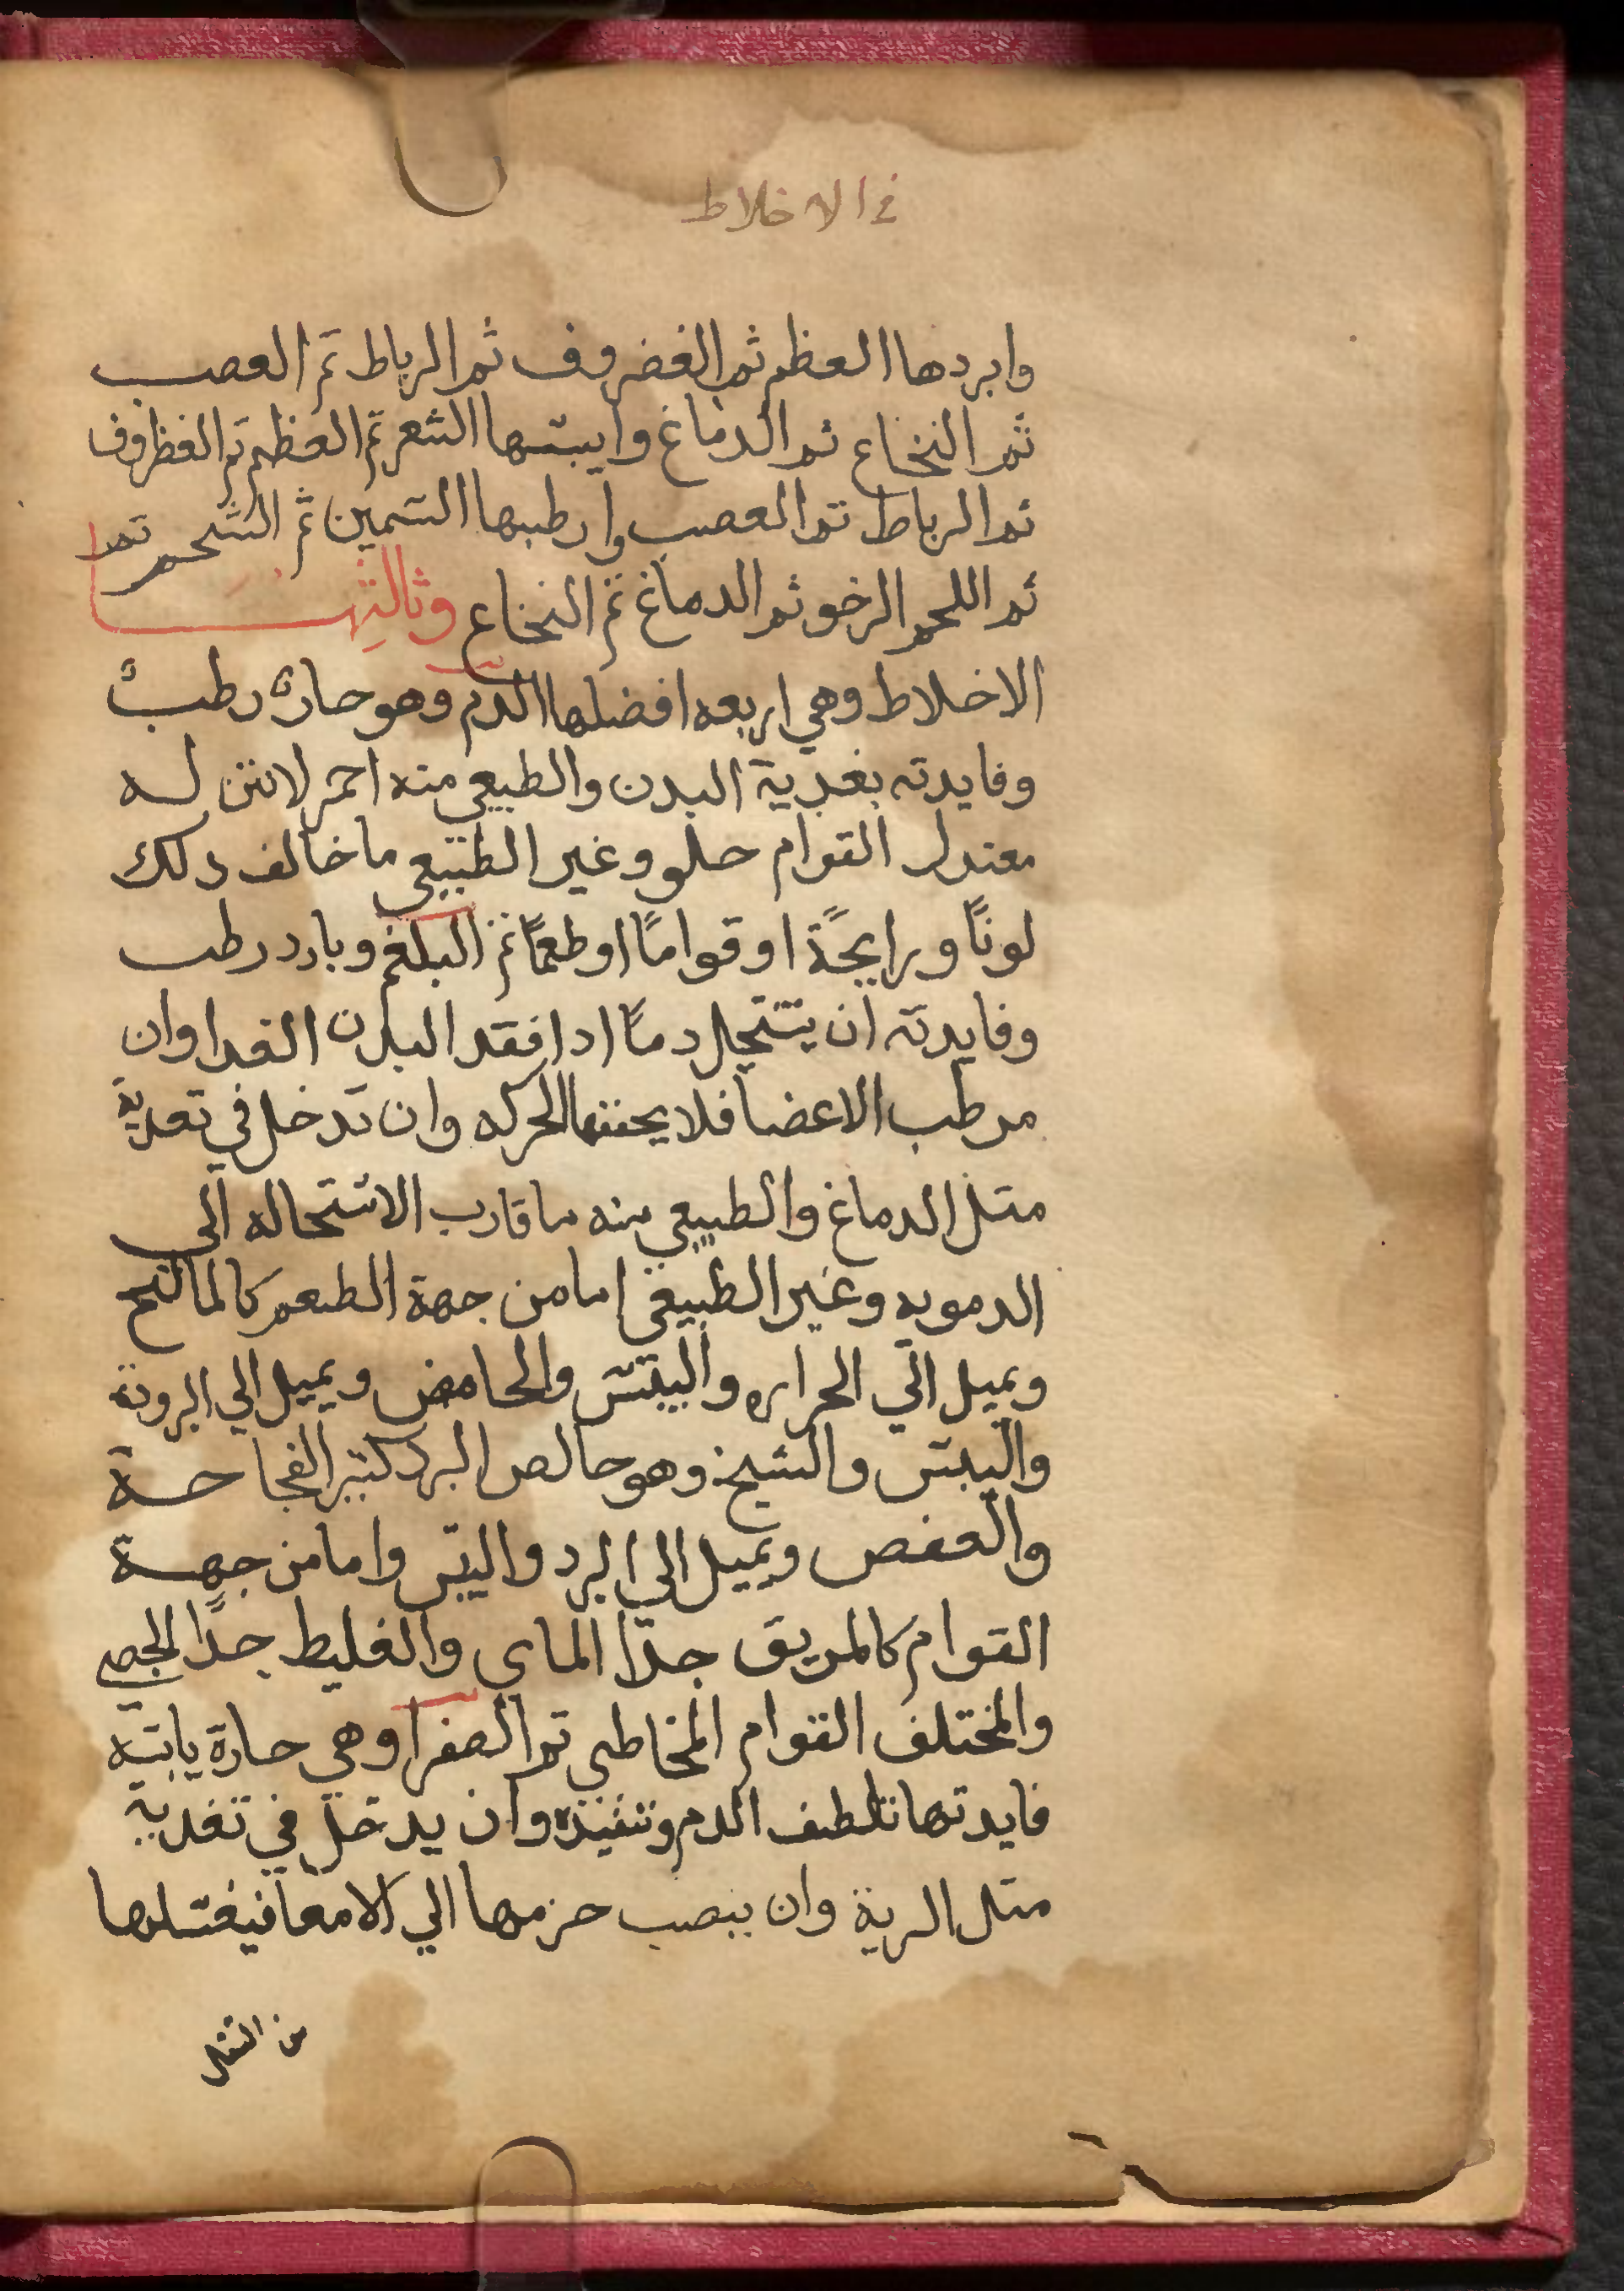 في الاخلاط
وابردها العظم ثم الغضروف ثم الرباط ثم العصب
ثم النخاع ثم الدماغ وايبسها الشعر ثم العظم ثم الغظروف
ثم الرباط ثم العصب وارطبها السمين ثم الشحم ثم
ثم اللحم الرخو ثم الدماغ ثم النخاع وثالثها
الاخلاط وهي اربعه افضلها الدم وهو حار رطب
وفايدته بغدية البدن والطبيعي منه احمر لا نتن له
معتدل القوام حلو وغير الطبيعي ما خالف دلك
لونًا ورايحًة او قوامًا او طعمًا ثم البلغم وبارد رطب
وفايدته ان يستحيل دمًا ادا فقد البدن الغدا وان
مرطب الاعضا فلا يجففها الحركه وان تدخل في تغدية
متل الدماغ والطبيعي منه ما قارب الاستحاله الي
الدمويه وغير الطبيعي اما من جهة الطعم كالمالح
ويميل الي الحراره واليبس والحامض ويميل الي البرودة
واليبس والشيخ وهو خالص البرد كتير الفجاجة
والعفص ويميل الي البرد واليبس واما من جهة
القوام كالمريق جدًا الماي والغليط جدًا الجصي
والمختلف القوام المخاطي تم الصفرا وهي حارة يابسه
فايدتها تلطف الدم وتنفيده وان يدخل في تغدية
متل الرية وان ينصب حزمها الي الامعا فيغسلها
من التفل